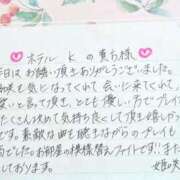 ホテル Kの貴方様
昨日はお誘い頂きありがとうございました。
姫咲を気になってくれて会いに来てくれて、
愛いと言って頂き、とても優しい方でプレイも
たくさん攻めて気持ち良くして頂き嬉しかった
です。素敵な曲も聴きながらのプレイも
でした。お部屋の模様替えファイトです!! また
しております。
姫咲